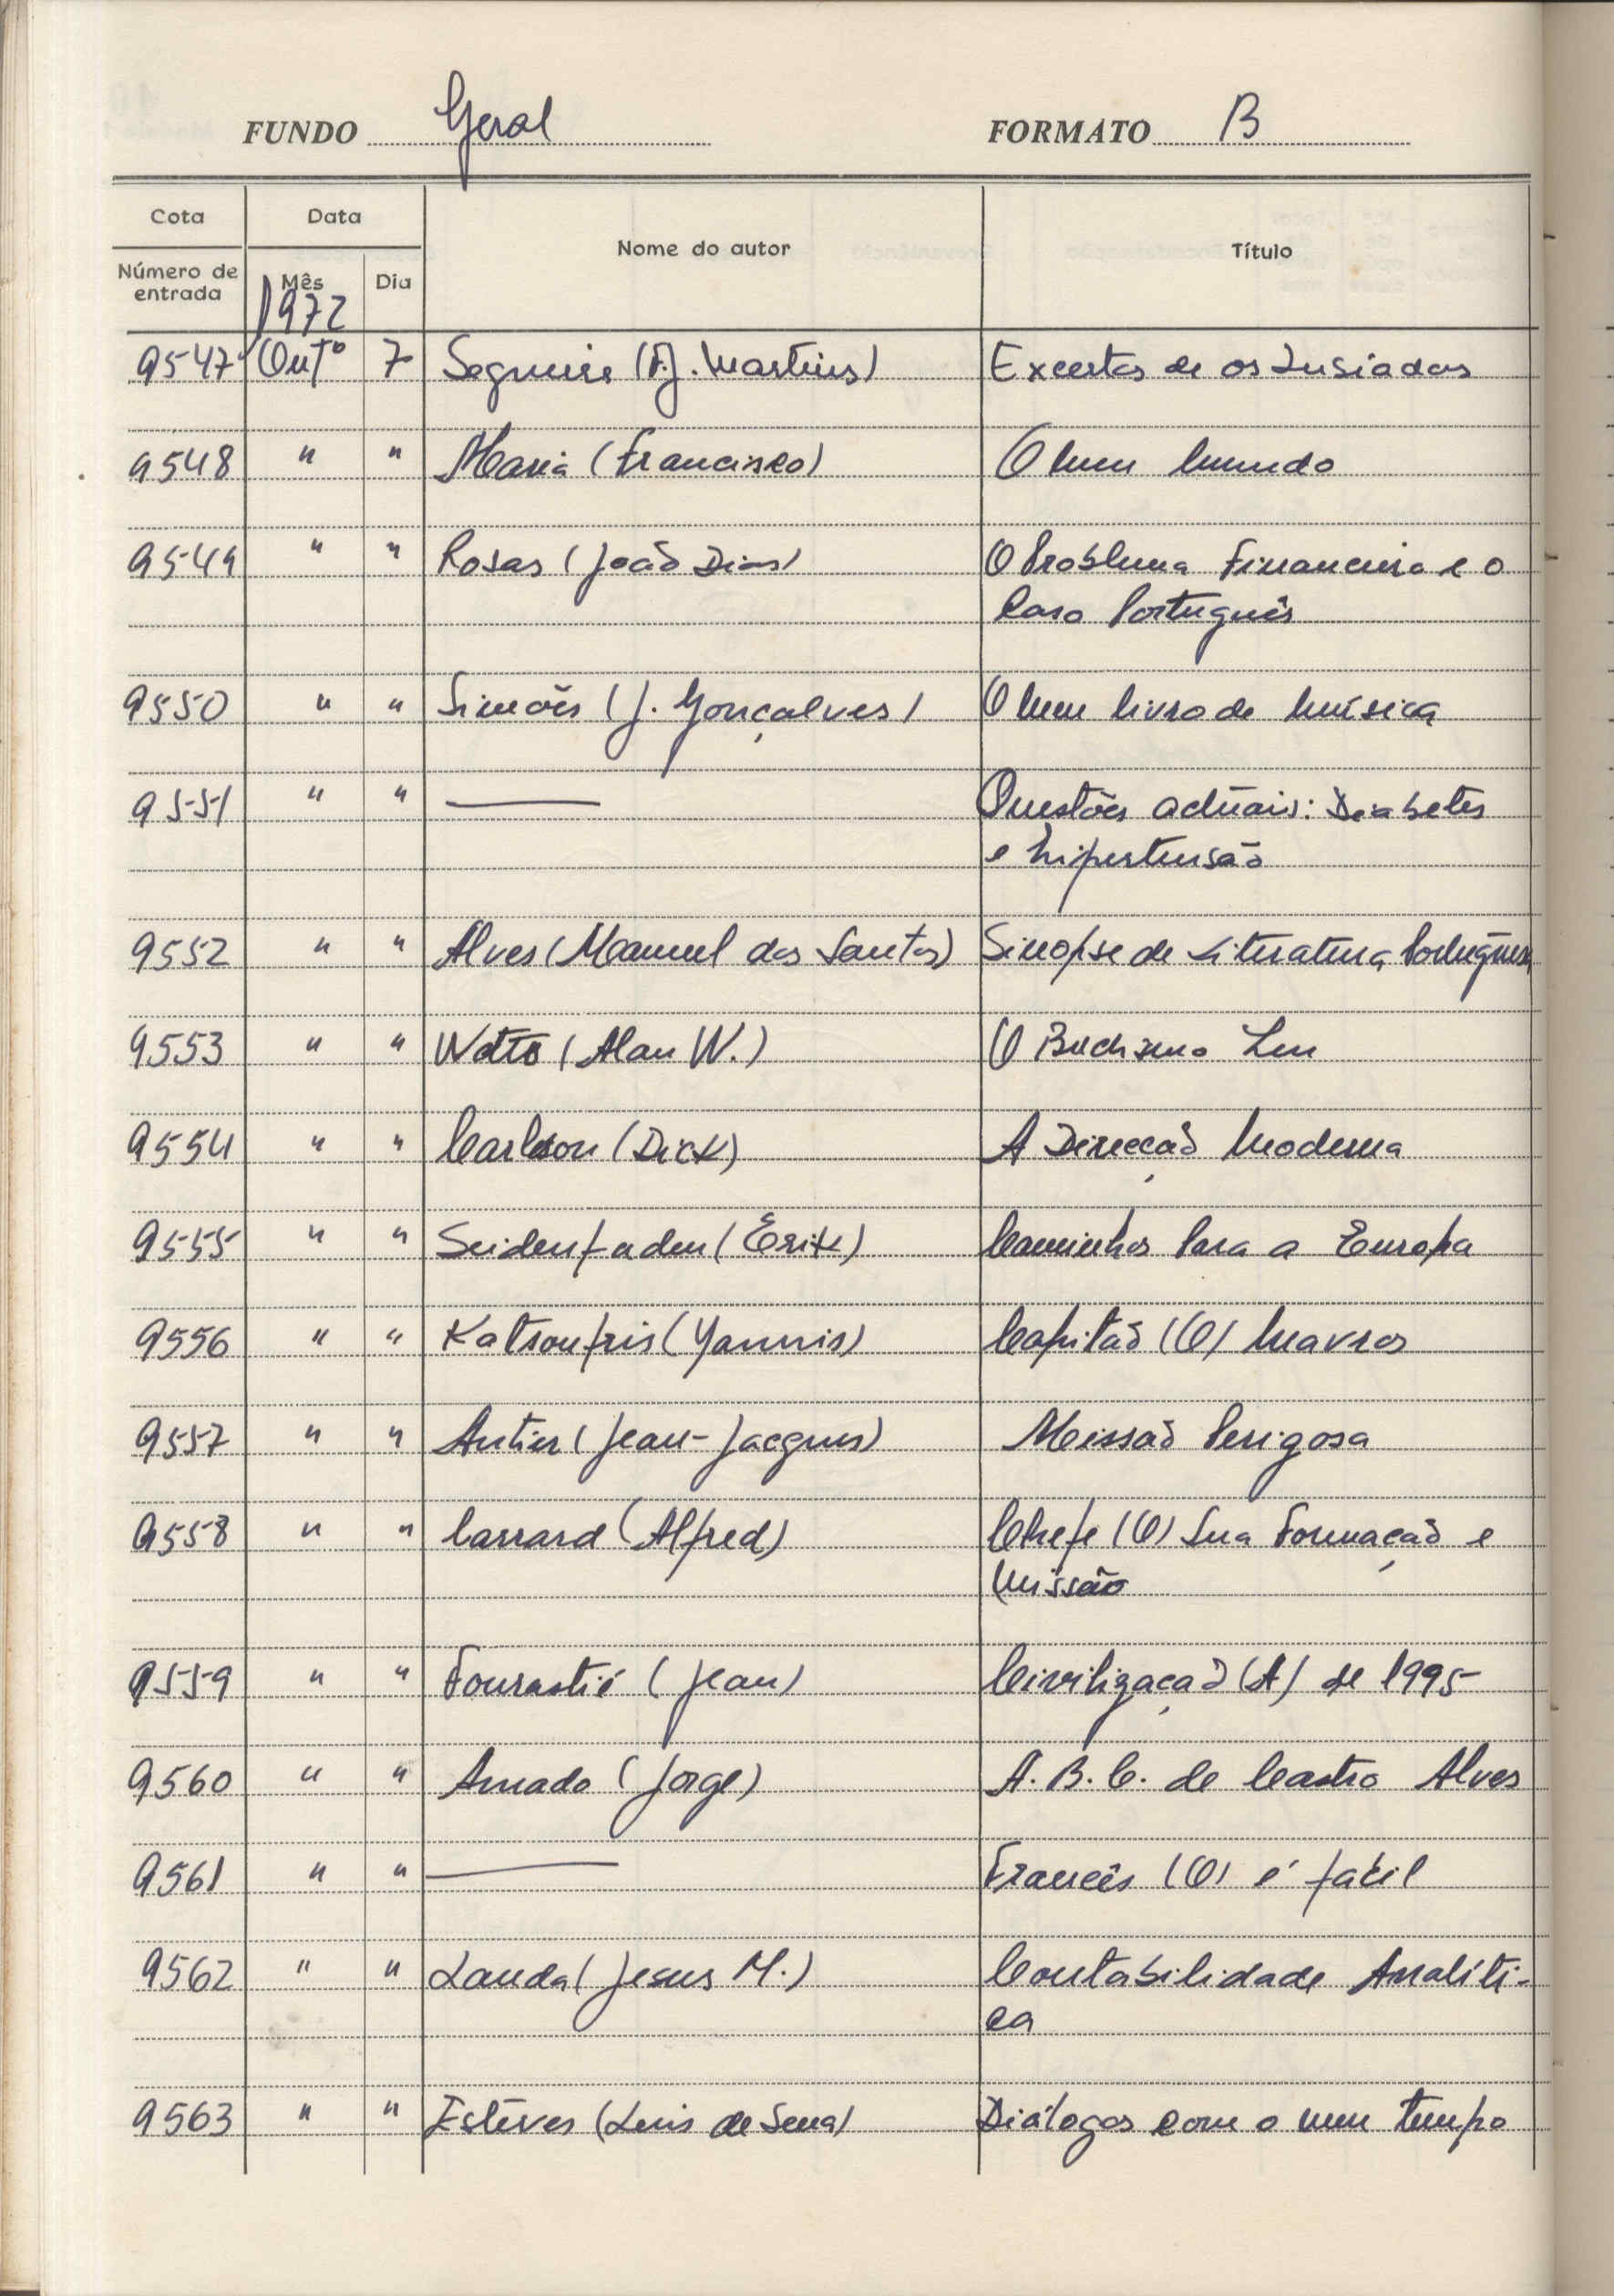 FUNDO Geral FORMATO B
Cota Data Nome do autor Título
Número de entrada Mês Dia
1972
9547 Outº 7 Segueira (F.J. Martins) Excertos de os Lusiadas
9548 " " Maria (Francisco) O meu mundo
9549 " " Rosas (João Dias) O Problema Financeiro e o
Caso Português
9550 " " Simões (J. Gonçalves) O meu livro de música
9551 " " —— Questões actuais: Diabetes
e hipertensão
9552 " " Alves (Manuel dos Santos) Sinopse de Literatura Portuguesa
9553 " " Watts (Alan W.) O Budismo Zen
9554 " " Carlson (Dick) A Direcção Moderna
9555 " " Seidenfaden (Erik) Caminhos Para a Europa
9556 " " Katsoufris (Yannis) Capitão (O) Mavros
9557 " " Antier (Jean-Jacques) Missão Perigosa
9558 " " Carrard (Alfred) Chefe (O) Sua Formação e
Missão
9559 " " Fourastié (Jean) Civilização (A) de 1995
9560 " " Amado (Jorge) A. B. C. de Castro Alves
9561 " " —— Francês (O) é fácil
9562 " " Landa (Jesus M.) Contabilidade Analíti-
ca
9563 " " Estêves (Luis de Sena) Diálogos com o meu tempo